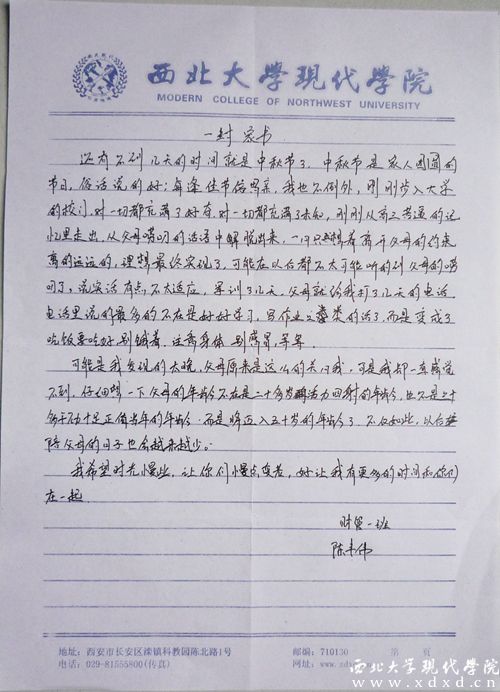 西北大学现代学院
MODERN COLLEGE OF NORTHWEST UNIVERSITY
一封家书
还有不到几天的时间就是中秋节了，中秋节是家人团圆的
节日，俗话说的好：每逢佳节倍思亲，我也不例外，刚刚步入大学
的校门，对一切都充满了好奇，对一切都充满了未知，刚刚从高三苦逼的记
忆里走出，从父母唠叨的话语中解脱出来，一心只想着离开父母的约束
离的远远的，理想最终实现了，可能在以后都不太可能听的到父母的唠
叨了，说实话有点不太适应，军训了几天，父母就给我打了几天的电话
电话里说的最多的不在是好好学习，写作业之类的话了，而是变成了
吃饭要吃好别饿着，注意身体，别感冒，等等
可能是我发现的太晚，父母原来是这么的关心我，可是我却一直感觉
不到，仔细想一下父母的年龄不在是二十多岁活力四射的年龄，也不是三十
多岁干劲十足正值当年的年龄，而是将迈入五十岁的年龄了，不仅如此，以后
陪父母的日子也会越来越少。
我希望时光慢些，让你们慢点变老，好让我有更多的时间和你们
在一起
财管一班
陈
地址：西安市长安区滦镇科教园陈北路1号
邮编：710130
第 页
电话：029-81555800(传真)
网址：www.xd
西北大学现代学院
www.xdxd.cn